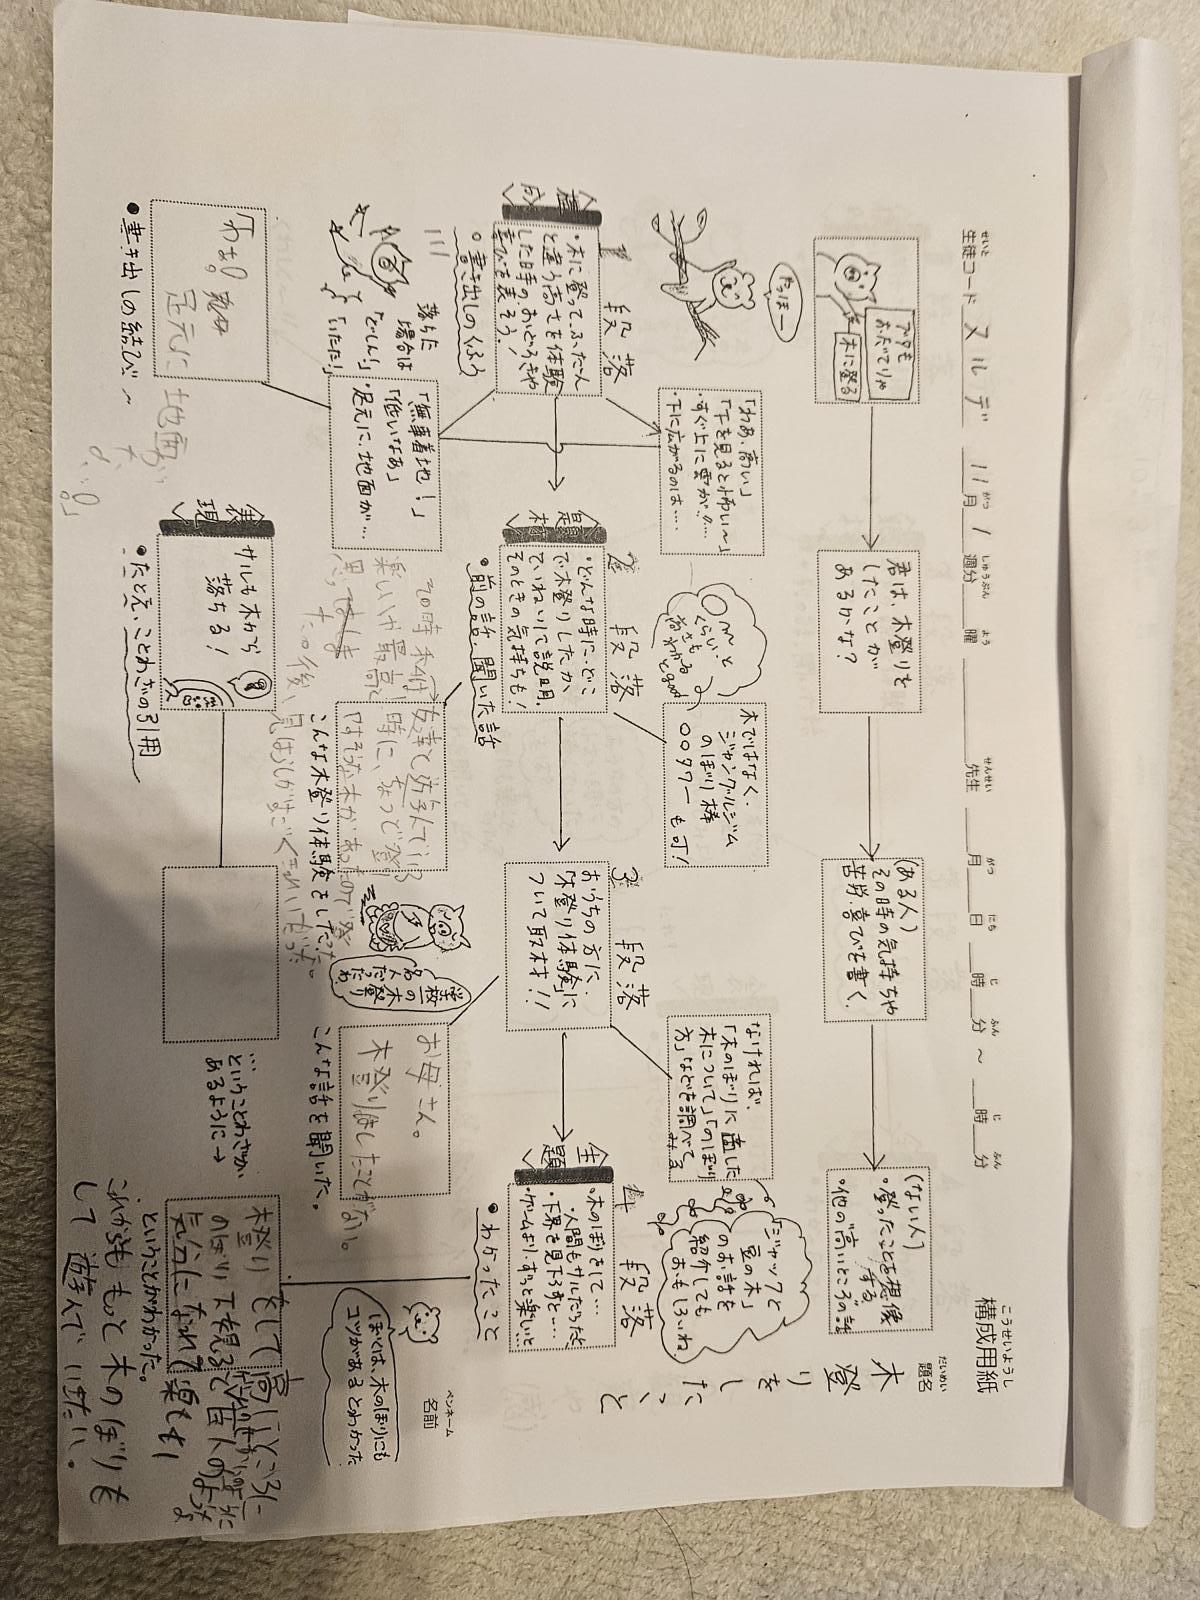 構成用紙
こうせいようし
生徒コード ヌルデ 11月 1週分 曜 先生 月 日 時 分 ～ 時 分
題名
だいめい
木登りをしたこと
ペンネーム
名前
ブタも
おだてりゃ
木に登る
君は、木登りを
したことが
あるかな？
(ある人)
その時の気持ちや
苦労・喜びを書く。
(ない人)
・登ったことを想像
する
・他の「高いところ」の話
やっほー
「わあ、高い」
「下を見ると怖い〜」
・すぐ上に雲が!?…
・下に広がるのは…
木ではなく、
ジャングルジム
のぼり棒
〇〇タワー も可！
なければ、
「木のぼりに適した
木について」「のぼり
方」などを調べてみる
「ジャックと
豆の木」
のお話を
紹介しても
おもしろいね。
〇mと
くらい、
高さも
わかる
とgood
構成
段落
・木に登って、ふだん
と違う高さを体験
した時のおどろきや
喜びを表そう！
。書き出しのくふう
題材
段落
・どんな時に、どこ
で木登りしたか、
ていねいに説明。
そのときの気持ちも！
・前の話、聞いた話
段落
おうちの方に、
「木登り体験」に
ついて取材!!
主題
段落
・木のぼりをして…
・人間もサルだちだ
・下界を見下ろすと…
・ゲームより、ずっと楽しいと
・わかったこと
落ちた
場合は
「どしん！」
「いたた！」
「無事着地！」
「低いなあ」
・足元に、地面が…
友達と遊んでいる
時に、ちょうど登
れそうな木があったので登
こんな木登り体験をした。
その時私は
楽しいや最高と
思っていました。
その後、
見はらしがすごくきれいだった。
学校一
の木登り
名人だったわ
お母さん。
木登りはしたことがない。
こんな話を聞いた。
ぼくは、木のぼりにも
コツがあるとわかった
「わあ。
足元に
地面が
だよ。」
・書き出しの結び〜
表現
サルも木から
落ちる！
・たとえ、ことわざの引用
…ということわざが
あるように→
木登りをして高いところに
のぼり下を見ると
気分になれて楽しい
ということがわかった。
これからももっと木のぼりも
して遊んでいきたい。